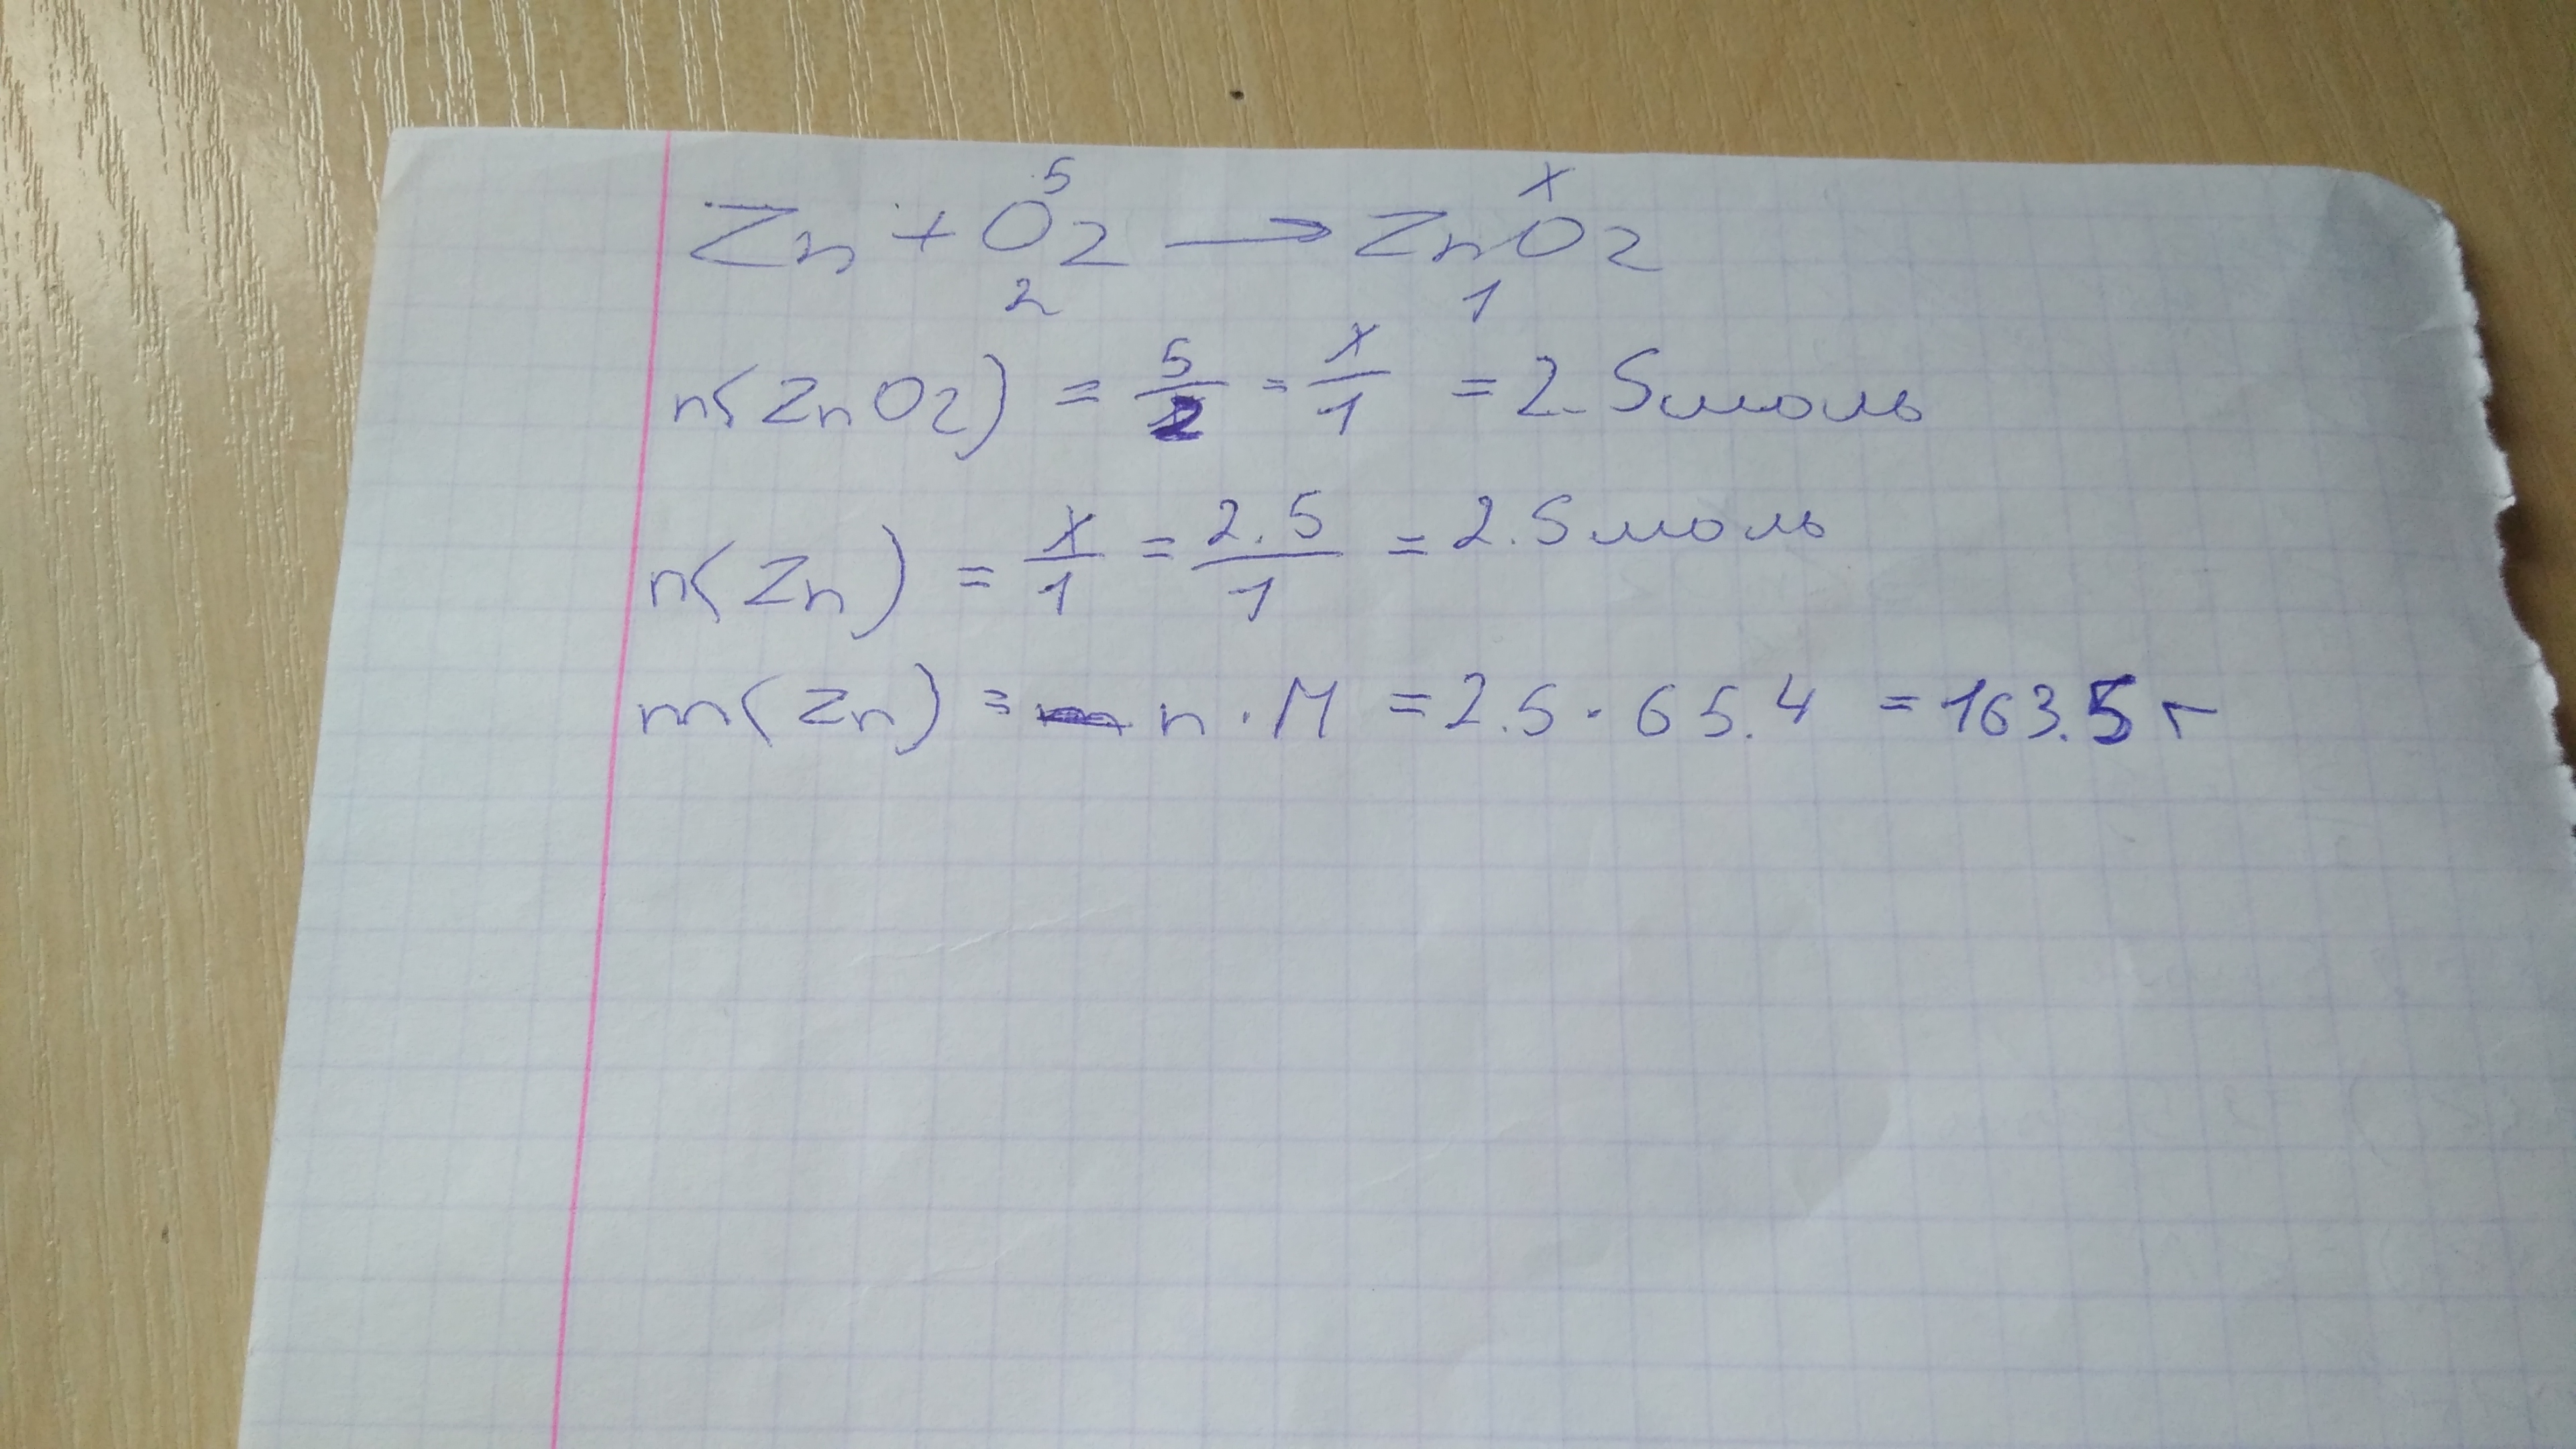 5 x
Zn + O2 → ZnO2
2 1
n(ZnO2) = 5/2 = x/1 = 2.5моль
n(Zn) = x/1 = 2.5/1 = 2.5моль
m(Zn) = n · M = 2.5 · 65.4 = 163.5 г